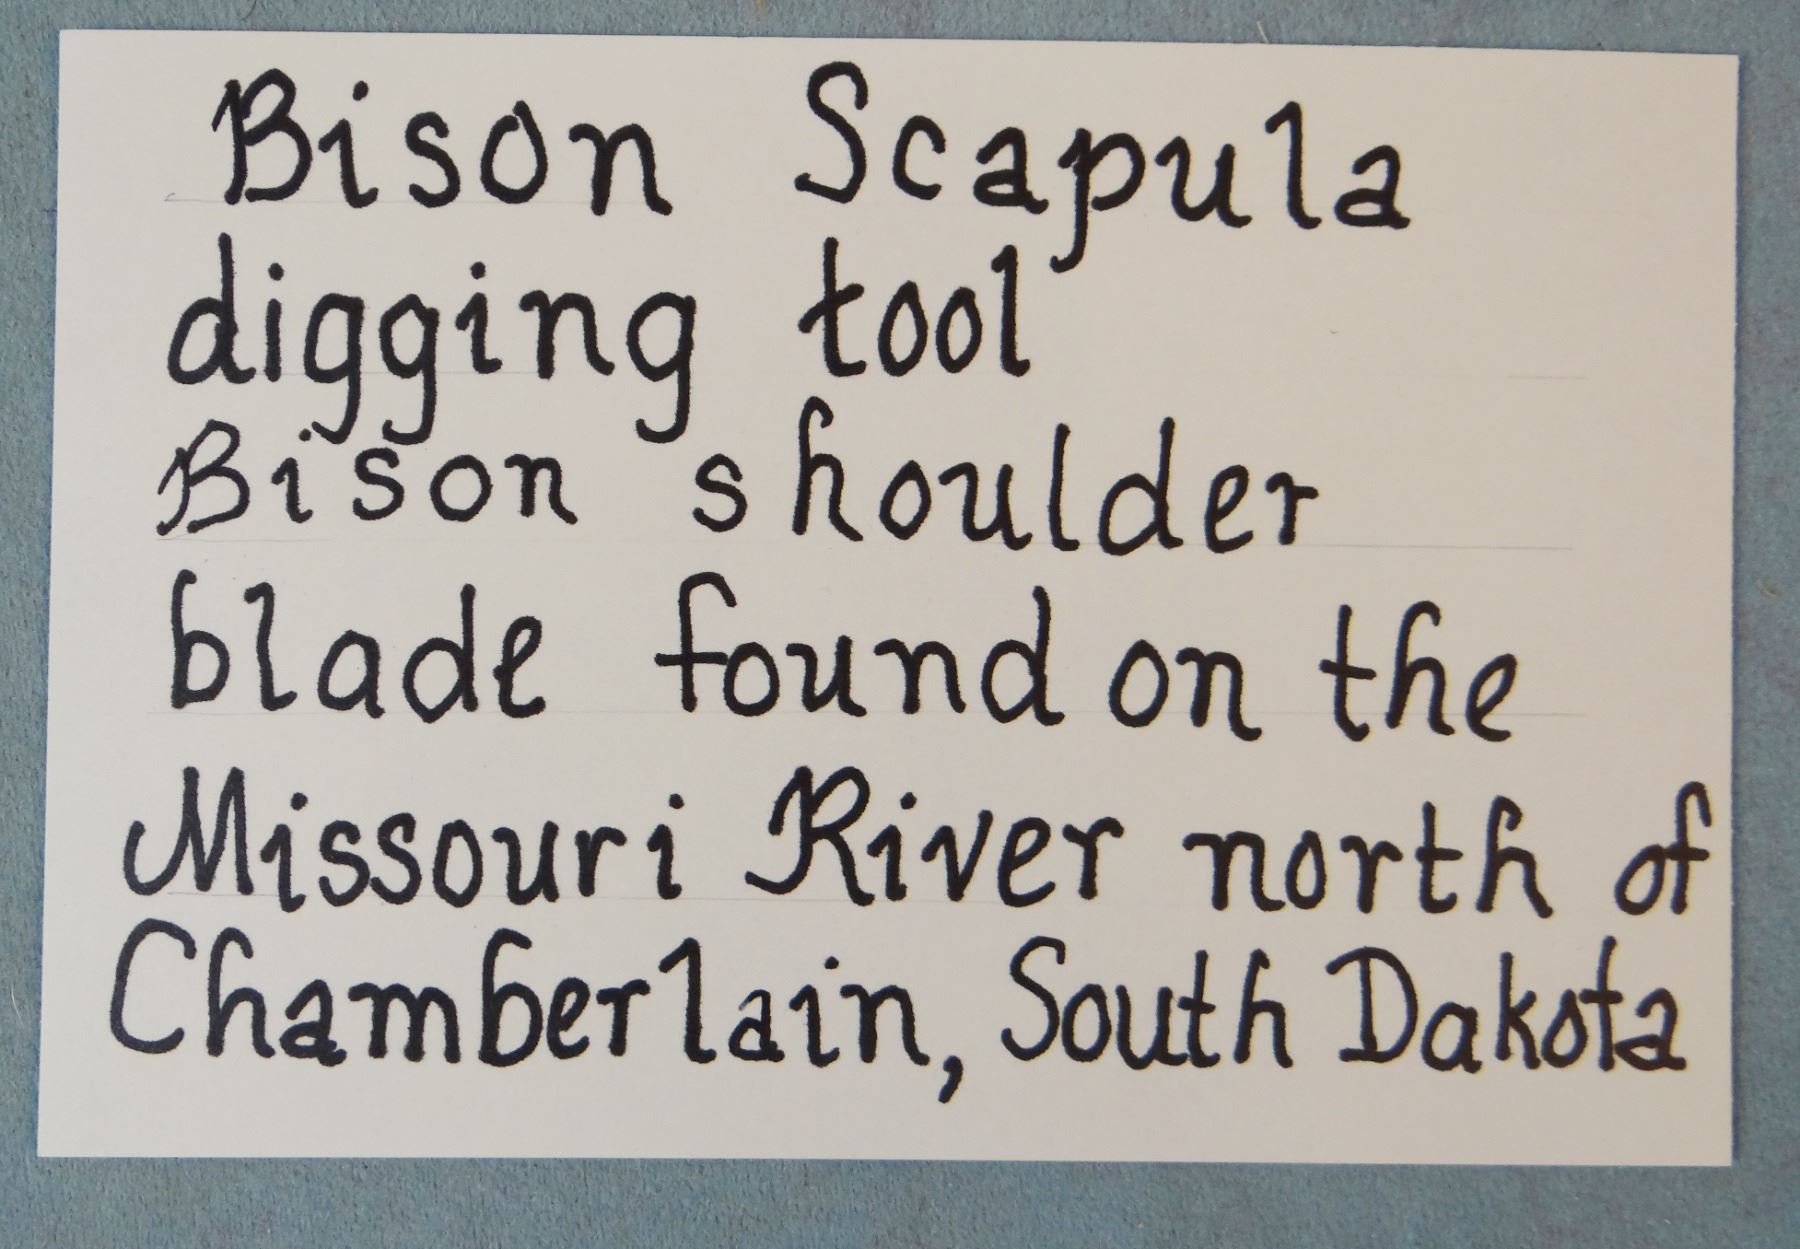 Bison Scapula
digging tool
Bison shoulder
blade found on the
Missouri River north of
Chamberlain, South Dakota